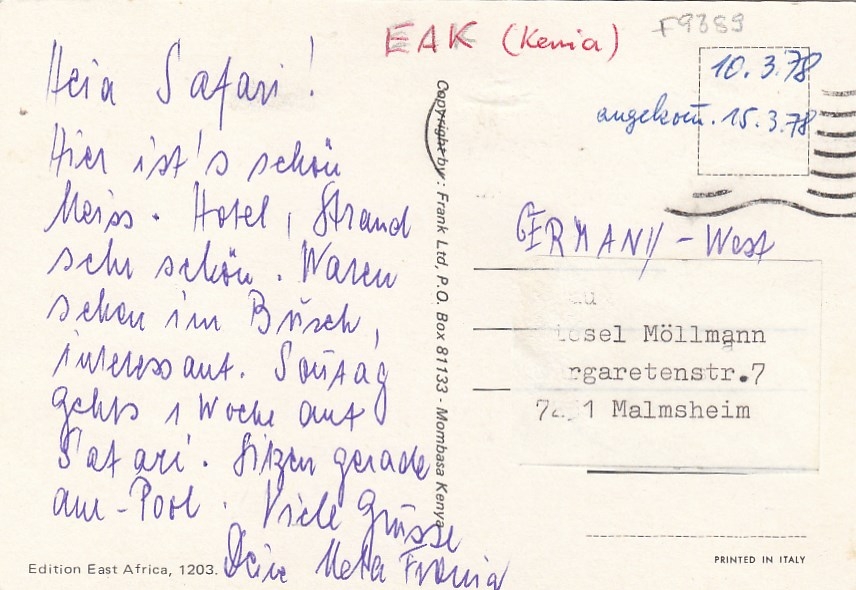 EAK (Kenia)
F9389
10.3.78
angekom. 15.3.78
Heia Safari!
Hier ist's schön
heiss. Hotel, Strand
sehr schön. Waren
schon im Busch,
interessant. Sonntag
gehts 1 Woche auf
Safari. Sitzen gerade
am-Pool. Viele Grüsse
Deine Meta
Copyright by: Frank Ltd, P.O. Box 81133 - Mombasa Kenya
GERMANY - West
Möllmann
rgaretenstr.7
Malmsheim
Edition East Africa, 1203.
PRINTED IN ITALY